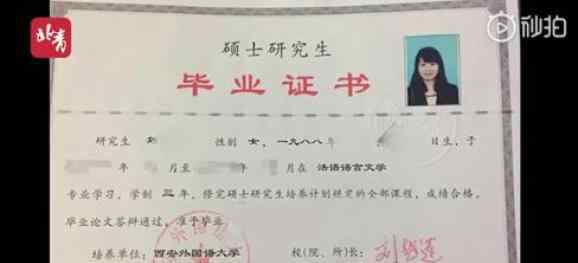 北青
秒拍
硕士研究生
毕业证书
研究生 刘 性别 女，一九八八年 日生，于
年 月至 年 月在 法语语言文学
专业学习，学制 三 年，修完硕士研究生培养计划规定的全部课程，成绩合格，
毕业论文答辩通过，准予毕业。
培养单位：西安外国语大学 校(院、所)长：